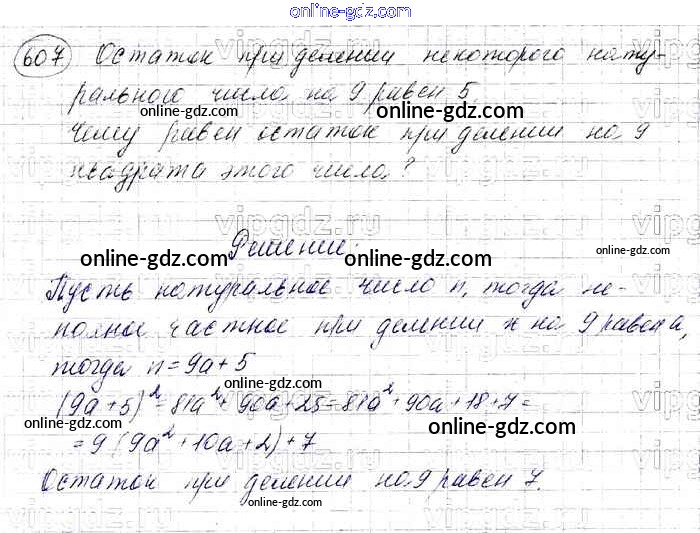 online-gdz.com
607 Остаток при делении некоторого нату-
рального числа на 9 равен 5
online-gdz.com online-gdz.com
Чему равен остаток при делении на 9
квадрата этого числа?
vipgdz.ru
Решение:
online-gdz.com online-gdz.com online-gdz.com
Пусть натуральное число n, тогда не-
полное частное при делении n на 9 равен a,
тогда n = 9a + 5
online-gdz.com
(9a + 5)² = 81a² + 90a + 25 = 81a² + 90a + 18 + 7 =
online-gdz.com
= 9 (9a² + 10a + 2) + 7
Остаток при делении на 9 равен 7.
online-gdz.com
online-gdz.com